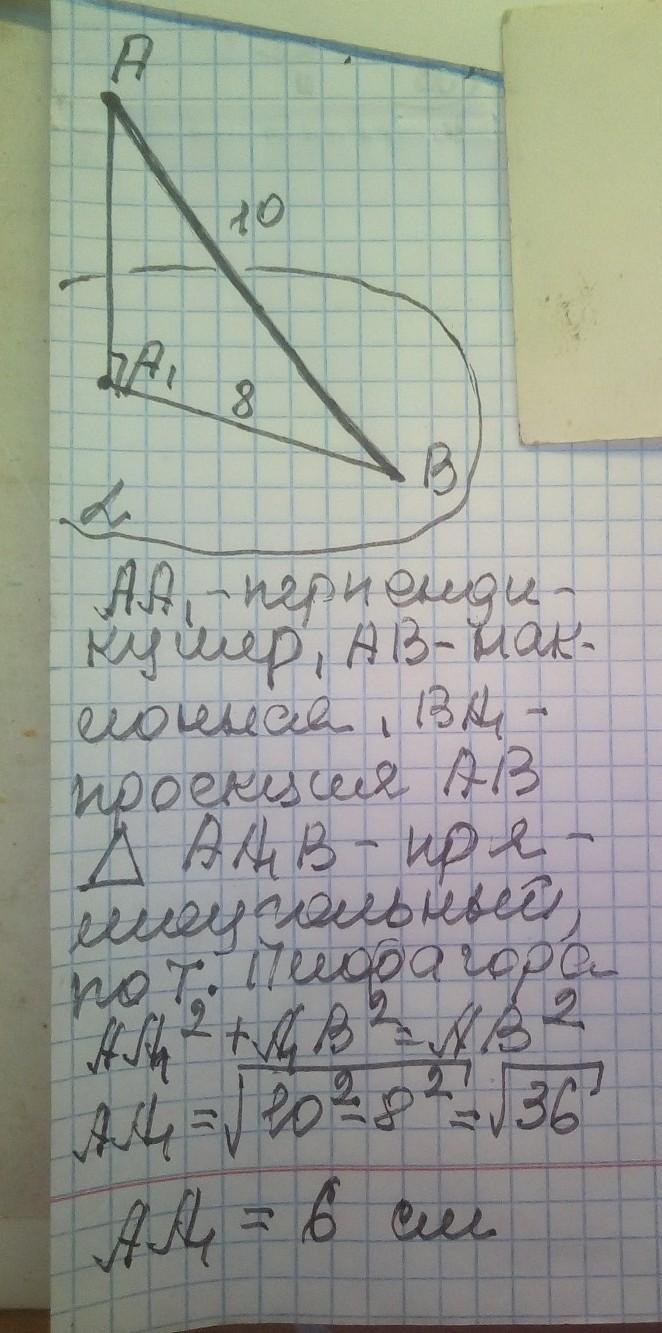 A
10
A₁
8
B
α
AA₁ - перпенди-
куляр, AB - нак-
лонная, BA₁ -
проекция AB
△ AA₁B - пря-
моугольный,
по т. Пифагора
AA₁² + A₁B² = AB²
AA₁ = √10² - 8² = √36
AA₁ = 6 см